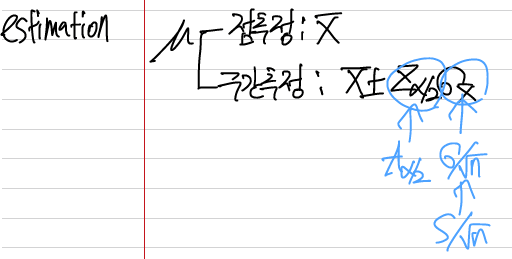 estimation
μ 점추정 : X̄
구간추정 : X̄ ± Z_{α/2} σ_{x̄}
t_{α/2} σ/√n
S/√n